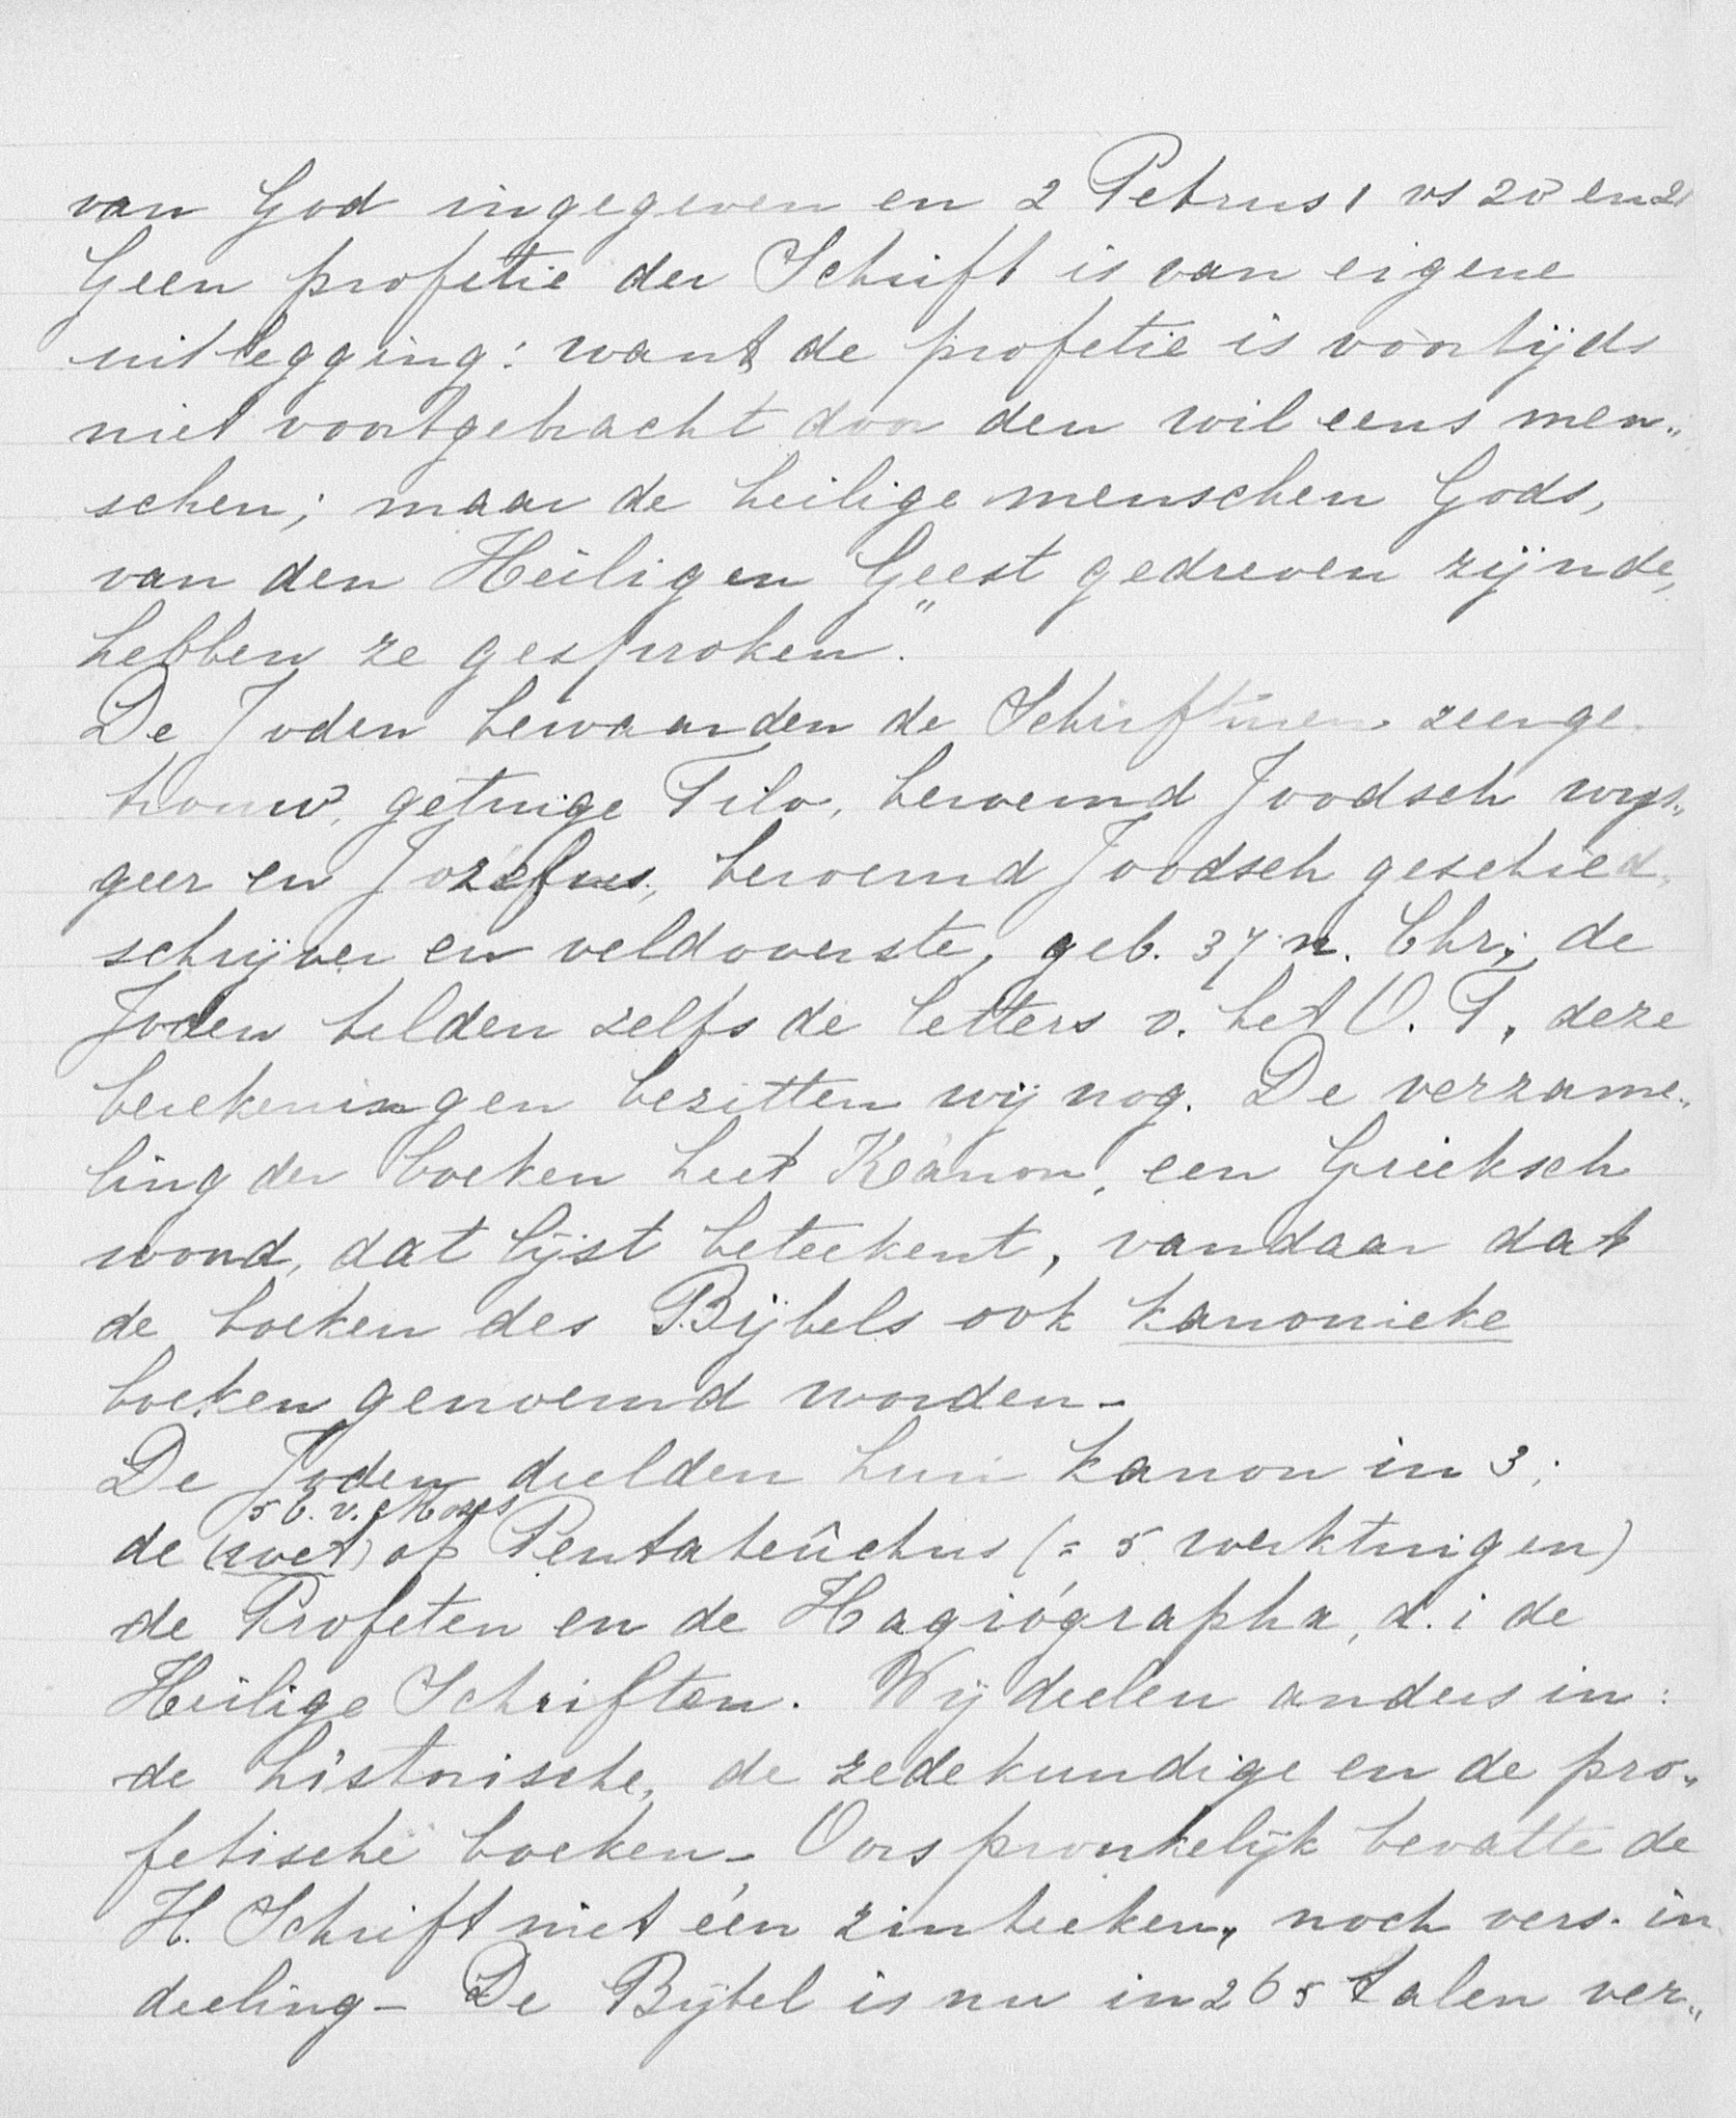 van God ingegeven en 2 Petrus 1 vs 20 en 21
Geen profetie der Schrift is van eigene
uitlegging: want de profetie is voortijds
niet voortgebracht door den wil eens men„
schen; maar de heilige menschen Gods,
van den Heiligen Geest gedreven zijnde,
hebben ze gesproken."
De Joden bewaarden de Schriften zeer ge„
trouw, getuige Filo, beroemd Joodsch wijs„
geer en Jozéfus, beroemd Joodsch geschied„
schrijver en veldoverste, geb. 37 n. Chr; de
Joden telden zelfs de letters v. het O. T., deze
berekeningen bezitten wij nog. De verzame„
ling der boeken heet Kánon, een Grieksch
woord, dat lijst beteekent, vandaar dat
de boeken des Bijbels ook kanonieke
boeken genoemd worden -
De Joden deelden hun kanon in 3;
5 b. v. Mozes
de (wet) of Pentateûchus (= 5 werktuigen)
de Profeten en de Hagiógrapha, d. i de
Heilige Schriften. Wij deelen anders in:
de historische, de zedekundige en de pro„
fetische boeken - Oorspronkelijk bevatte de
H. Schrift niet één zinteeken, noch vers. in
deeling - De Bijbel is nu in 265 talen ver„